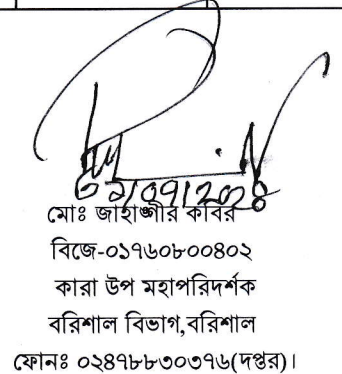 মোঃ জাহাঙ্গীর কবির
বিজে-০১৭৬০৮০০৪০২
কারা উপ মহাপরিদর্শক
বরিশাল বিভাগ,বরিশাল
ফোনঃ ০২৪৭৮৮৩০৩৭৬(দপ্তর)।